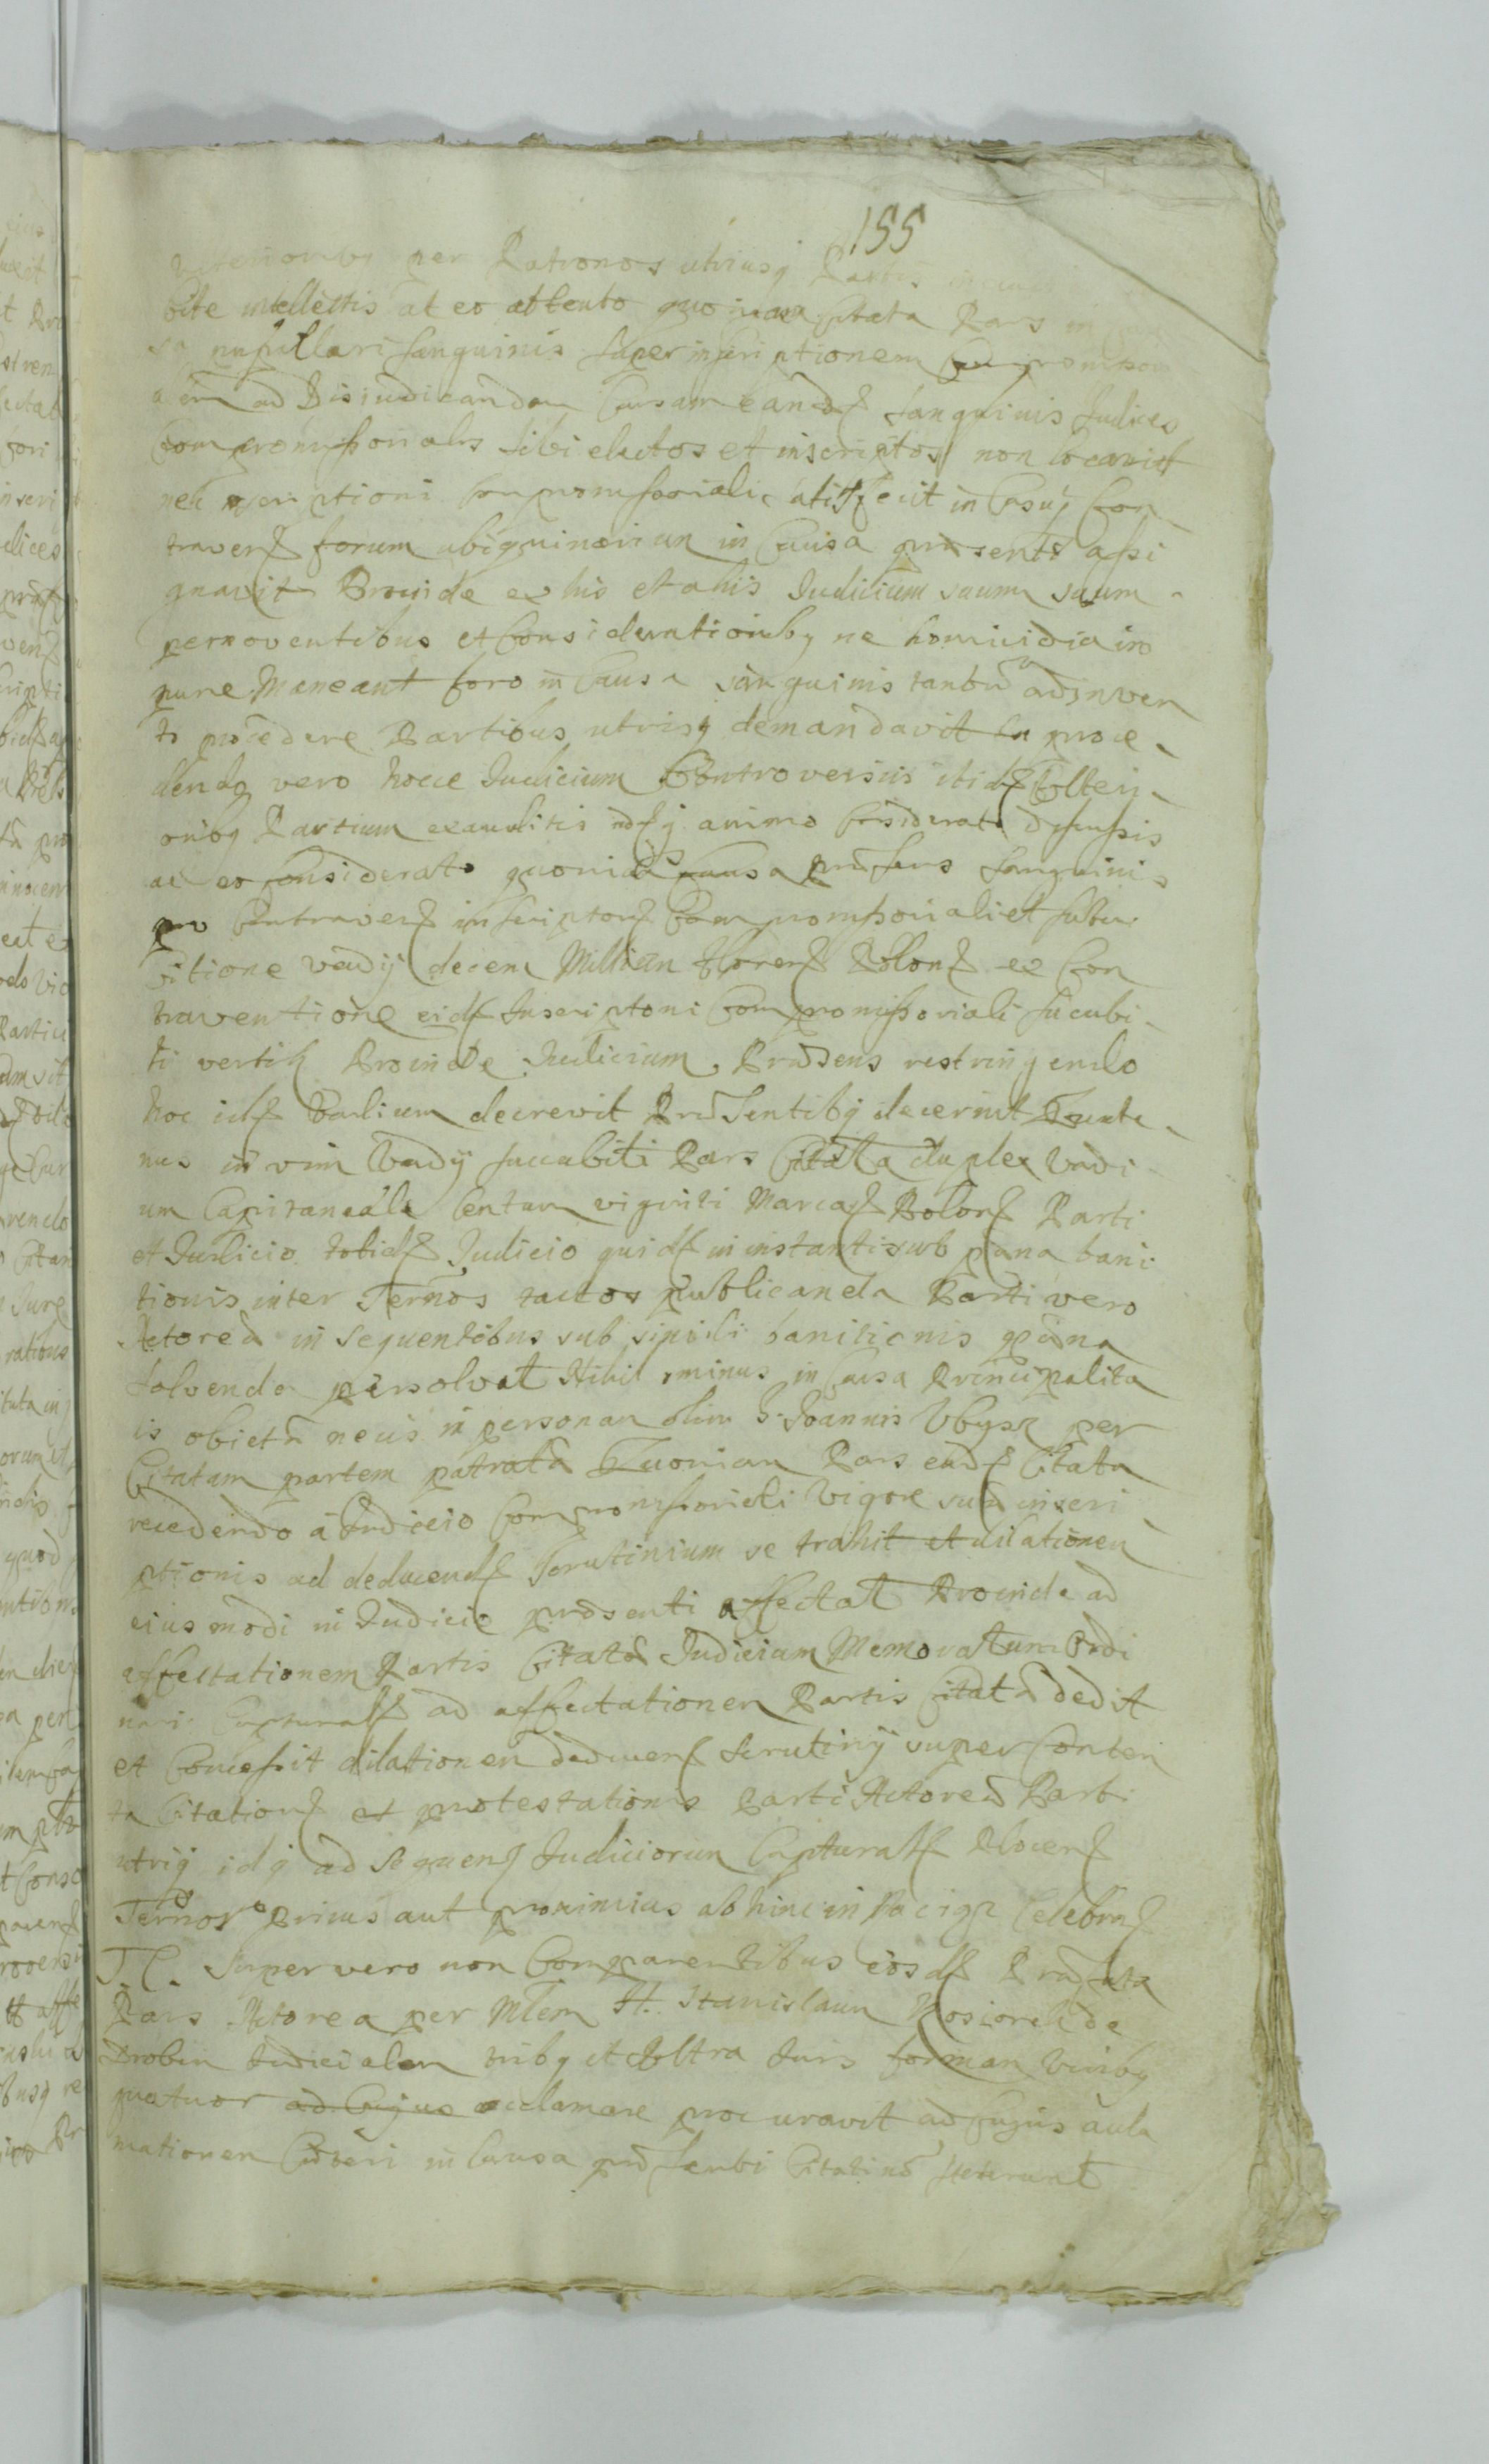 155
per Patronos utriusq Partis
rite intellectis at eo attento quoniam citata Pars in
sa pupillari sanguinis super inscriptionem Compromisso
alem ad Disiudicandam Causam eand sanguinis Judices
Compromissorialis sibi electos et inscriptos non locavit
nec inscriptioni Compromissoriali satisfecit in Casuq Con
travens forum ubiquinarium in Causa præsenti assi
gnavit Proinde ex his et aliis Judicium suum suum
permoventibus et Considerationibq ne homicidia im
pune Maneant foro in Causa sanguinis tantum adinven
to procedere Partibus utrisq demandavit In proce
dendo vero hocce Judicium Controversiis itid Ulteri
oribq Partium exauditis adq animo Considerato discussis
ac eo considerato quoniam Causa præsens sanguinis
pro Contravens inscription Compromissoriali et succu
bitione vadij decem Millium Floren Polon ex Con
traventione eid Inscriptioni Compromissoriali sucubi
ti vertit Proinde Judicium Præsens restringendo
hoc id Vadium decrevit Præsentibq decernit Quate
nus in vim Vadij succubiti Pars Citata duplex Vadi
um Capitaneale Centum viginti Marcas Polon Parti
et Judicio totid Judicio quid in instanti sub pœna bani
tionis inter Termnos tactos publicanda Parti vero
Actoreæ in sequentibus sub simili banitionis pœna
solvenda persolvat Nihil ominus in Causa Principalita
is obiectæ necis in personam olim G. Joannis Ubysz per
Citatam partem patratæ Quoniam Pars ead Citata
recedendo a Judicio Compromissoriali Vigore suæ inscri
ptionis ad deducend Scrutinium se trahit et dilationem
eiusmodi in Judicio præsenti affectat Proinde ad
affectationem Partis Citatæ Judicium Memoratum Ordi
nari Captural ad affectationem Partis Citatæ dedit
et Concessit dilationem deducen Scrutinij super Conten
ta Citation et protestationis Parti Actoreæ Parti
utriq idq ad sequens Judiciorum Captural Plocen
Termnos Prius aut proximius abhinc in Raciąż Celebran
T. C. Super vero non Comparentibus eosd Præfata
Pars Actorea per Mtem H. Stanislaum Nosiorek de
Drobin Judicialem tribq et Ultra Juris formam Vicibq
quatuor ad Cujus acclamare procuravit ad cujus acla
mationem Cæteri in Causa præsenti Citati non steterunt